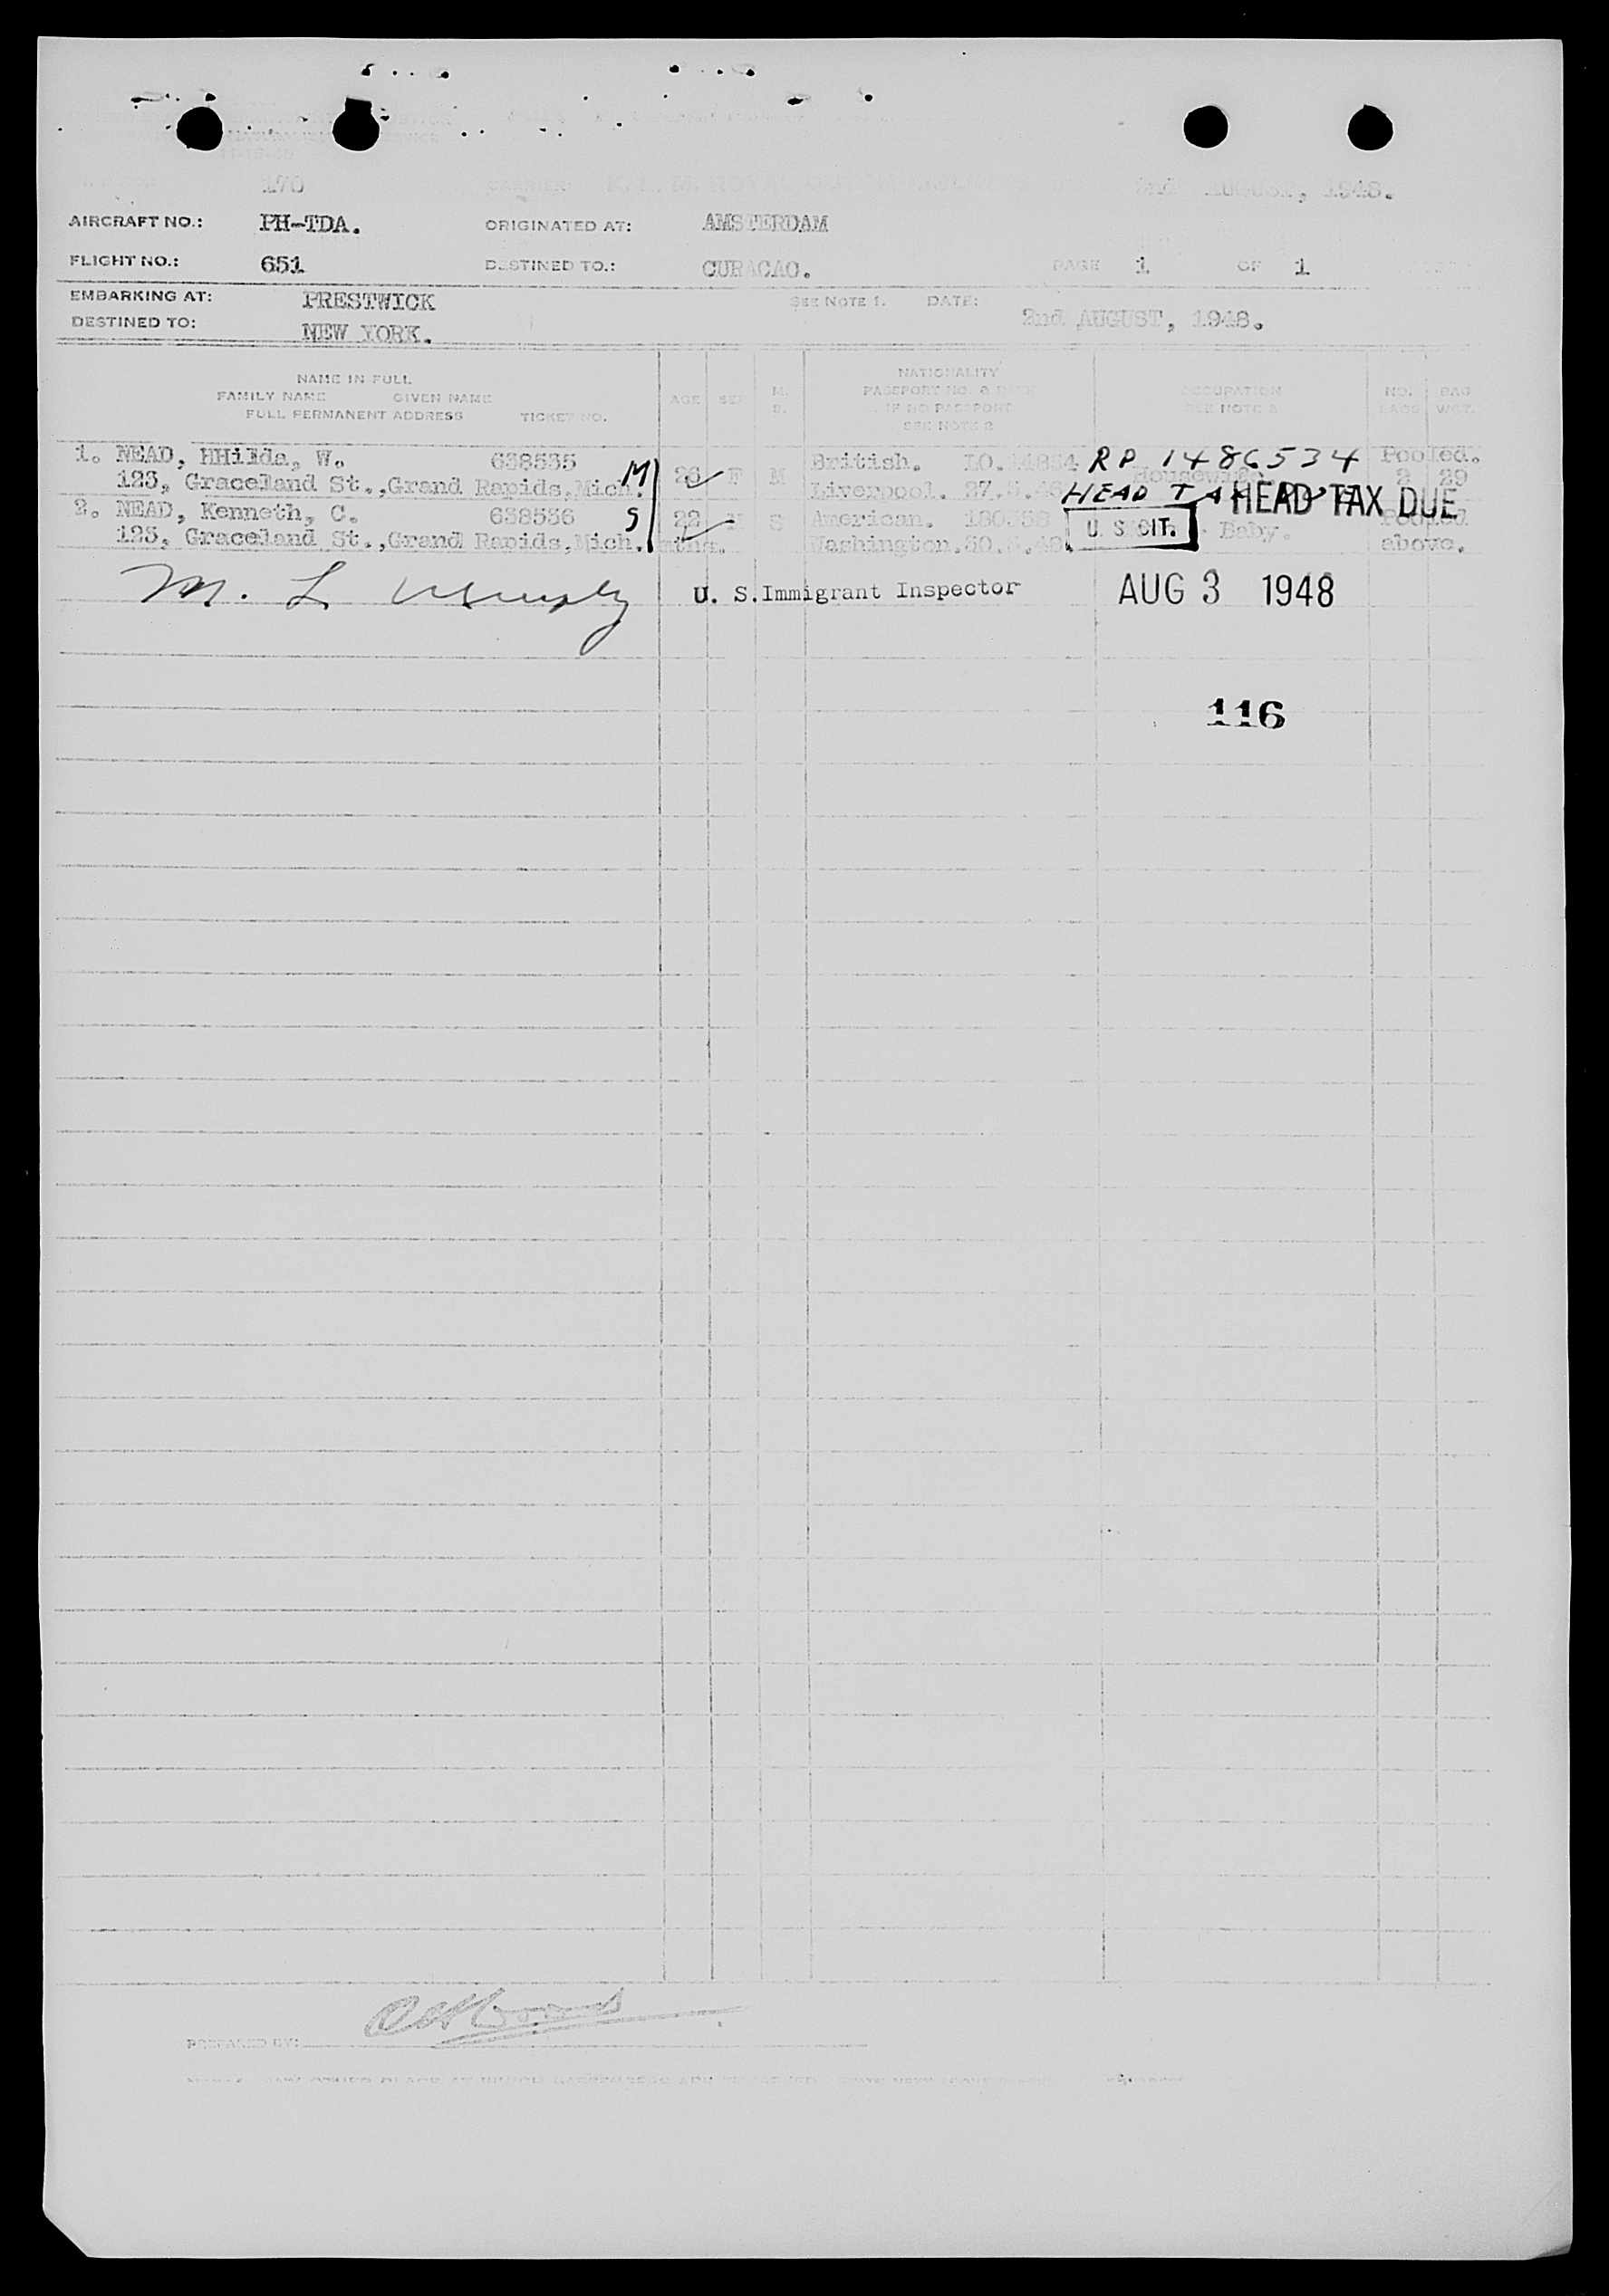 170 2nd AUGUST, 1948.
AIRCRAFT NO.: PH-TDA. ORIGINATED AT: AMSTERDAM
FLIGHT NO.: 651 DESTINED TO.: CURACAO. PAGE 1 OF 1
EMBARKING AT: PRESTWICK SEE NOTE 1. DATE: 2nd AUGUST, 1948.
DESTINED TO: NEW YORK.
NAME IN FULL
FAMILY NAME GIVEN NAME
FULL PERMANENT ADDRESS TICKET NO.
AGE SEX M. S.
NATIONALITY
PASSPORT NO. & DATE
IF NO PASSPORT
SEE NOTE 2
OCCUPATION
SEE NOTE 3
NO. BAGS BAG WGT.
1. NEAD, HHilda, W. 638535 M 26 F M British. RP 1486534 Pooled.
123, Graceland St., Grand Rapids, Mich. Liverpool. Housewife 2 29
HEAD TAX DUE
2. NEAD, Kenneth, C. 638536 S 22 S American. U. S. CIT. Pooled
123, Graceland St., Grand Rapids, Mich. mths. Washington. Baby. above.
M. L. U. S. Immigrant Inspector AUG 3 1948
116
PREPARED BY: